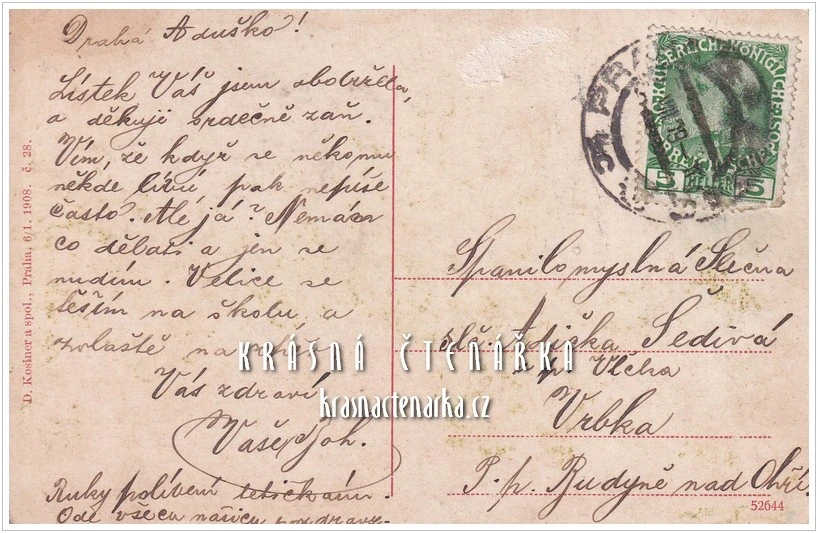 Drahá Aduško!
Lístek Váš jsem obdržela,
a děkuji srdečně zaň.
Vím, že když se někomu
někde líbí, pak nepíše
často. Ale já? Nemám
co dělati a jen se
nudím. Velice se
těším na školu a
zvláště na
Váš zdraví
Vaše Boh.
Ruky políbení tetičkám.
Ode všech našich pozdrav
D. Kosiner a spol., Praha, 6/1. 1908. č. 28.
PRA
KAISERLICHE KÖNIGLICHE
5 HELLER 5
Spanilomyslná Slečna
slč. Adička Šedivá
Vlčka
Vrbka
P. p. Budyně nad Ohří.
52644
KRÁSNÁ ČTENÁŘKA
krasnactenarka.cz